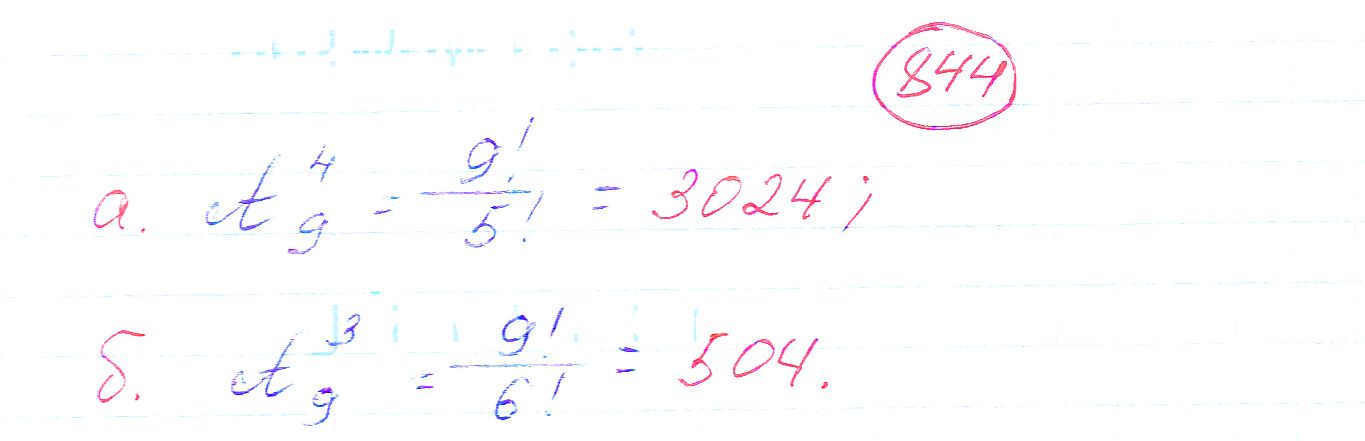 844
а. A₉⁴ = 9!/5! = 3024;
б. A₉³ = 9!/6! = 504.